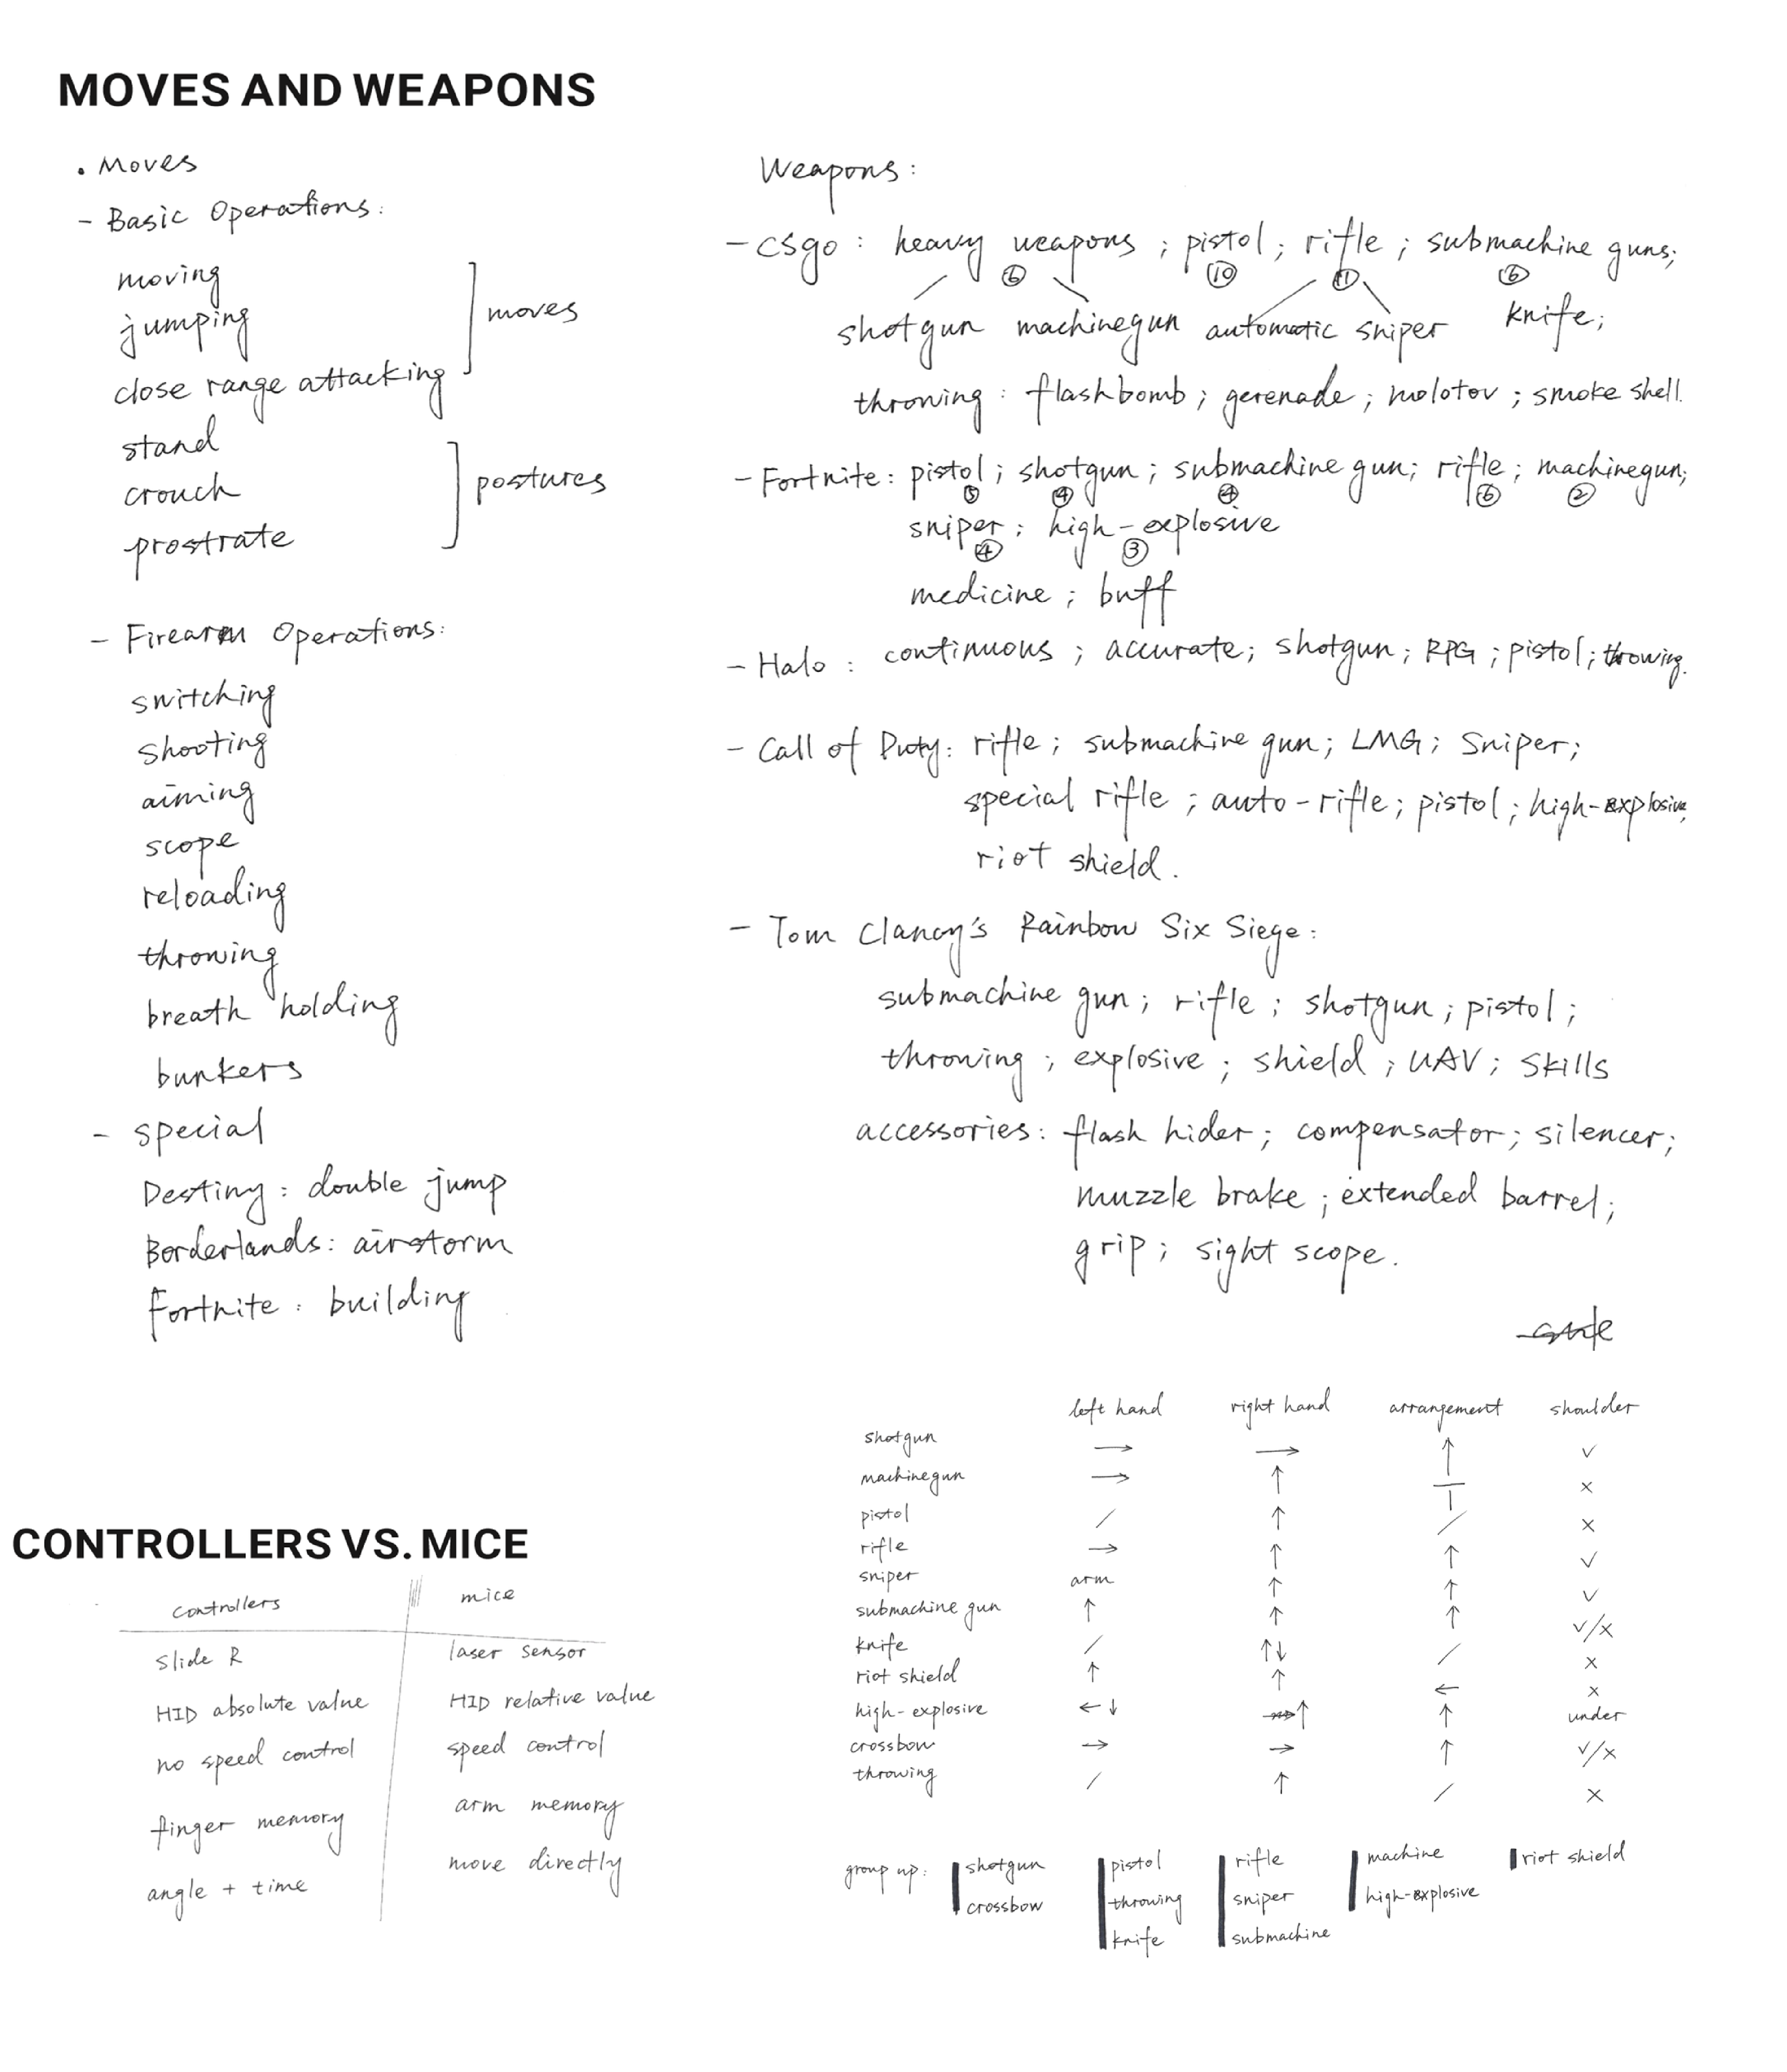 MOVES AND WEAPONS
• Moves
- Basic Operations:
moving
jumping
close range attacking
moves
stand
crouch
prostrate
postures
- Firearm Operations:
switching
shooting
aiming
scope
reloading
throwing
breath holding
bunkers
- special
Destiny: double jump
Borderlands: airstorm
Fortnite: building
Weapons:
- csgo: heavy weapons; pistol; rifle; submachine guns;
⑥ ⑩ ⑪ ⑥
shotgun machinegun automatic sniper knife;
throwing: flashbomb; gerenade; molotov; smoke shell.
- Fortnite: pistol; shotgun; submachine gun; rifle; machinegun;
④ ④ ⑥ ②
sniper; high-explosive
④ ③
medicine; buff
- Halo: continuous; accurate; shotgun; RPG; pistol; throwing.
- Call of Duty: rifle; submachine gun; LMG; Sniper;
special rifle; auto-rifle; pistol; high-explosive;
riot shield.
- Tom Clancy's Rainbow Six Siege:
submachine gun; rifle; shotgun; pistol;
throwing; explosive; shield; UAV; skills
accessories: flash hider; compensator; silencer;
muzzle brake; extended barrel;
grip; sight scope.
left hand right hand arrangement shoulder
shotgun → → ↑ ✓
machinegun → ↑ ┬ ×
pistol / ↑ / ×
rifle → ↑ ↑ ✓
sniper arm ↑ ↑ ✓
submachine gun ↑ ↑ ↑ ✓/×
knife / ↑↓ / ×
riot shield ↑ ↑ ← ×
high-explosive ←↓ ↑ ↑ under
crossbow → → ↑ ✓/×
throwing / ↑ / ×
group up: shotgun pistol rifle machine riot shield
crossbow throwing sniper high-explosive
knife submachine
CONTROLLERS VS. MICE
controllers mice
slide R laser sensor
HID absolute value HID relative value
no speed control speed control
finger memory arm memory
angle + time move directly